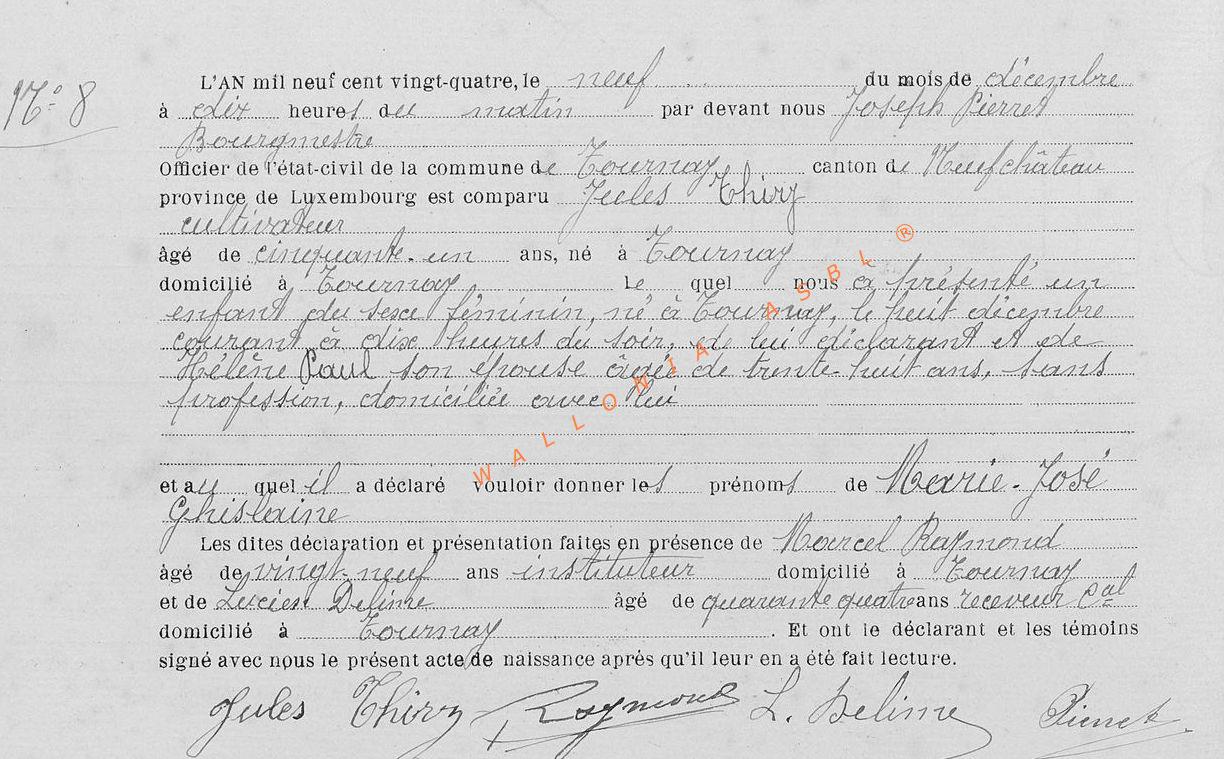 N° 8
L'AN mil neuf cent vingt-quatre, le neuf du mois de décembre
à dix heures du matin par devant nous Joseph Pierret
Bourgmestre
Officier de l'état-civil de la commune de Tournay canton de Neufchâteau
province de Luxembourg est comparu Jules Thiry
cultivateur
âgé de cinquante-un ans, né à Tournay
domicilié à Tournay Le quel nous à présenté un
enfant du sexe féminin, né à Tournay, le huit décembre
courant, à dix heures du soir, de lui déclarant et de
Hélène Paul son épouse âgée de trente-huit ans, sans
profession, domiciliée avec lui
et au quel il a déclaré vouloir donner les prénoms de Marie-José
Ghislaine
Les dites déclaration et présentation faites en présence de Marcel Raymond
âgé de vingt-neuf ans instituteur domicilié à Tournay
et de Lucien Delime âgé de quarante quatre ans receveur Cal
domicilié à Tournay. Et ont le déclarant et les témoins
signé avec nous le présent acte de naissance après qu'il leur en a été fait lecture.
Jules Thiry Raymond L. Delime Pierret
WALLONIA ASBL ®